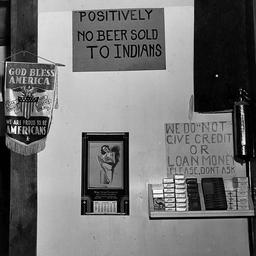 POSITIVELY
NO BEER SOLD
TO INDIANS
GOD BLESS
AMERICA
WE ARE PROUD TO BE
AMERICANS
WE DO NOT
GIVE CREDIT
OR
LOAN MONEY
PLEASE, DON'T ASK